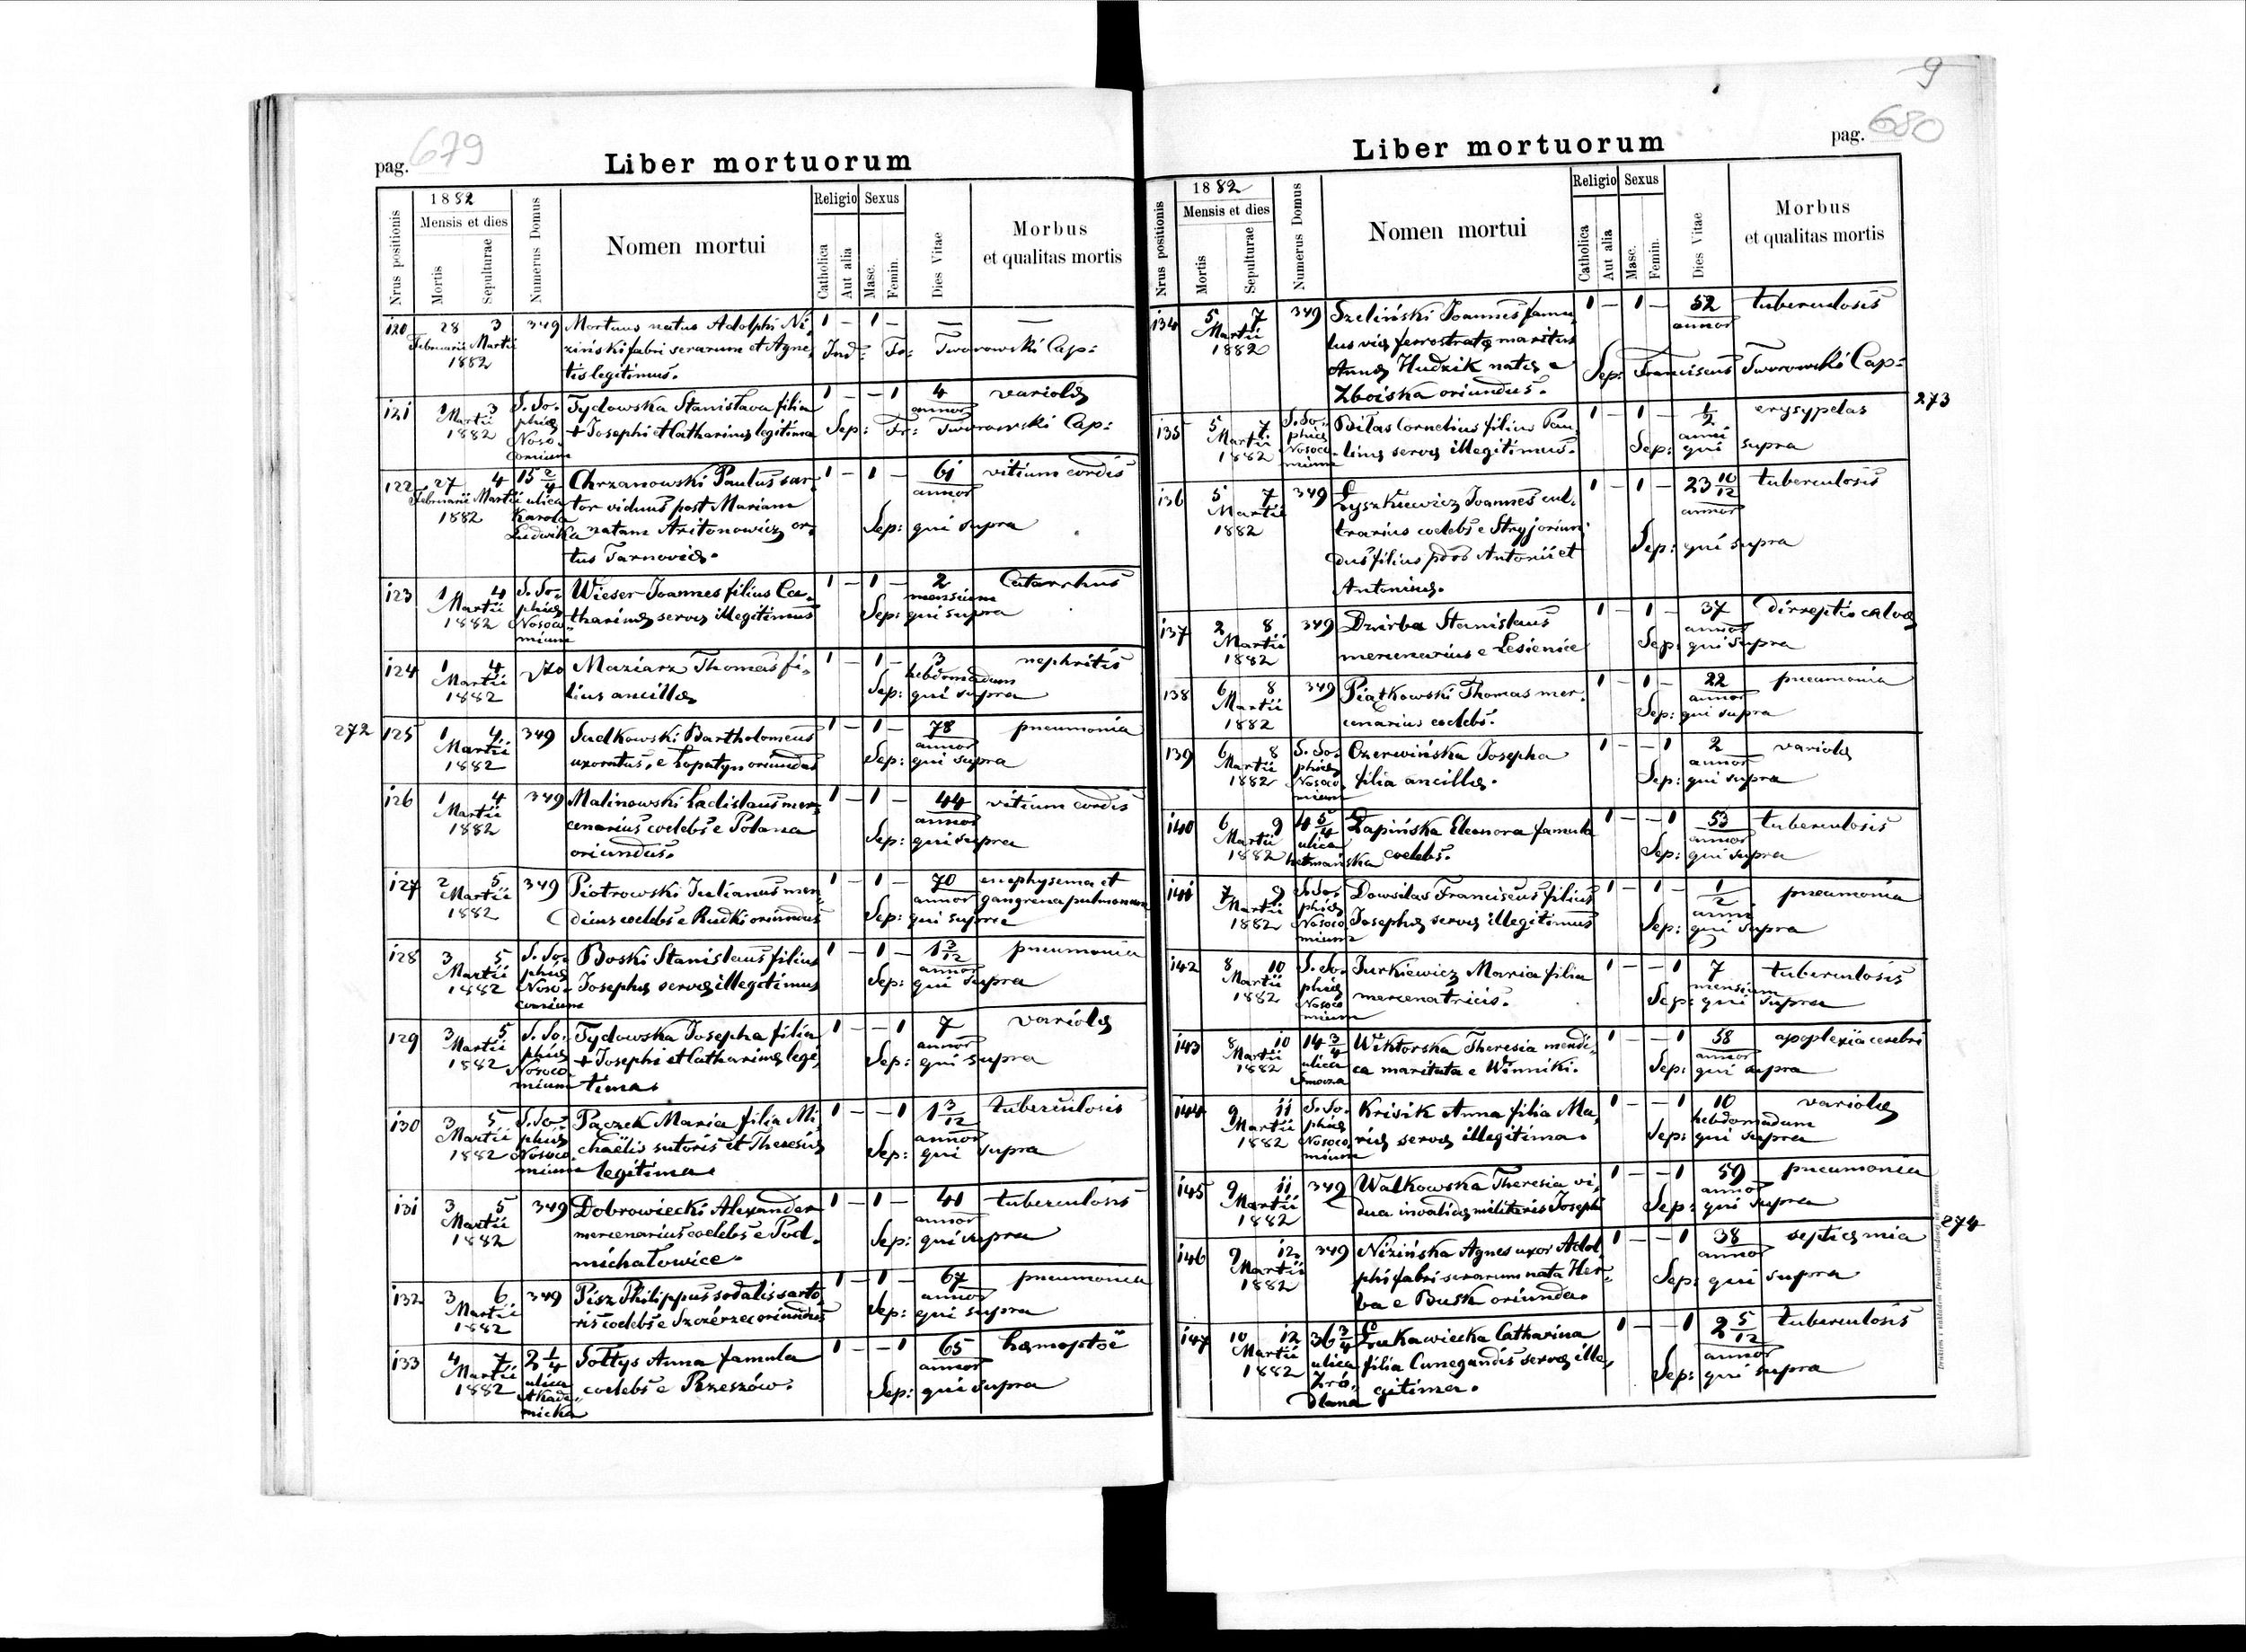 9
pag. 679
Liber mortuorum
Nrus positionis
1882
Mensis et dies
Mortis
Sepulturae
Numerus Domus
Nomen mortui
Religio
Catholica
Aut alia
Sexus
Masc.
Femin.
Dies Vitae
Morbus
et qualitas mortis
120 28 3 349 Mortuus natus Adolphi Ni- 1 – 1 – — —
Februarii Martii ziński fabri serarum et Agne- Ind: Fr: Tworowski Cap:
1882 tis legitimus.
121 1 3 S. So- Tydowska Stanislava filia 1 – – 1 4 variola
Martii phiæ + Josephi et Catharinæ legitima annor
1882 Noso- Sep: Fr: Tworowski Cap:
comium
122 27 4 15 2/4 Chrzanowski Paulus sar- 1 – 1 – 61 vitium cordis
Februarii Martii ulica tor viduus post Mariam annor
1882 Karola natam Aritonowicz or- Sep: qui supra
Ludwika tus Tarnoviæ.
123 1 4 S. So- Wieser Joannes filius Ca- 1 – 1 – 2 Catarrhus
Martii phiæ tharinæ servæ illegitimus mensium
1882 Nosoco- Sep: qui supra
mium
124 1 4 Maziarz Thomas fi- 1 – 1 – 3 nephritis
Martii lius ancillæ hebdomadum
1882 Sep: qui supra
272 125 1 4 349 Sudkowski Bartholomeus 1 – 1 – 78 pneumonia
Martii uxoratus, e Łopatyn oriundus annor
1882 Sep: qui supra
126 1 4 349 Malinowski Ladislaus mer- 1 – 1 – 44 vitium cordis
Martii cenarius coelebs e Polana annor
1882 oriundus. Sep: qui supra
127 2 5 349 Piotrowski Julianus men- 1 – 1 – 70 emphysema et
Martii dicus coelebs e Rudki oriundus annor gangrena pulmonum
1882 Sep: qui supra
128 3 5 S. So- Boski Stanislaus filius 1 – 1 – 1 3/12 pneumonia
Martii phiæ Josephæ servæ illegitimus annor
1882 Noso- Sep: qui supra
comium
129 3 5 S. So- Tydowska Josepha filia 1 – – 1 7 variola
Martii phiæ + Josephi et Catharinæ legi- annor
1882 Nosoco- tima. Sep: qui supra
mium
130 3 5 S. So- Pączek Maria filia Mi- 1 – – 1 1 3/12 tuberculosis
Martii phiæ chaëlis sutoris et Theresiæ annor
1882 Nosoco- legitima. Sep: qui supra
mium
131 3 5 349 Dobrowiecki Alexander 1 – 1 – 41 tuberculosis
Martii mercenarius coelebs e Pod- annor
1882 michałowice. Sep: qui supra
132 3 6 349 Pisz Philippus sodalis sarto- 1 – 1 – 67 pneumonia
Martii ris coelebs e Szczérzec oriundus annor
1882 Sep: qui supra
133 4 7 2 1/4 Sołtys Anna famula 1 – – 1 65 hæmoptoë
Martii ulica coelebs e Rzeszów. annor
1882 Akade- Sep: qui supra
micka
Liber mortuorum
pag. 680
Nrus positionis
1882
Mensis et dies
Mortis
Sepulturae
Numerus Domus
Nomen mortui
Religio
Catholica
Aut alia
Sexus
Masc.
Femin.
Dies Vitae
Morbus
et qualitas mortis
134 5 7 349 Szeliński Joannes famu- 1 – 1 – 52 tuberculosis
Martii lus viæ ferrostratæ maritus annor
1882 Annæ Hudzik natæ e Sep: Franciscus Tworowski Cap:
Zboiska oriundus.
273
135 5 7 S. So- Bilas Cornelius filius Pau- 1 – 1 – 1/2 erysypelas
Martii phiæ linæ servæ illegitimus. anni
1882 Nosoco- Sep: qui supra
mium
136 5 7 349 Łyszkiewicz Joannes cul- 1 – 1 – 23 10/12 tuberculosis
Martii trarius coelebs e Stryj oriun- annor
1882 dus filius Antonii et Sep: qui supra
Antoninæ.
137 2 8 349 Dzirba Stanislaus 1 – 1 – 37 dirreptio calvæ
Martii mercenarius e Lesienice annor
1882 Sep: qui supra
138 6 8 349 Piątkowski Thomas mer- 1 – 1 – 22 pneumonia
Martii cenarius coelebs. annor
1882 Sep: qui supra
139 6 8 S. So- Czerwińska Josepha 1 – – 1 2 variola
Martii phiæ filia ancillæ. annor
1882 Nosoco- Sep: qui supra
mium
140 6 9 4 5/4 Łapińska Eleonora famula 1 – – 1 53 tuberculosis
Martii ulica coelebs. annor
1882 hetmańska Sep: qui supra
141 7 9 S. So- Dowsilas Franciscus filius 1 – 1 – 1/2 pneumonia
Martii phiæ Josephæ servæ illegitimus anni
1882 Nosoco- Sep: qui supra
mium
142 8 10 S. So- Jurkiewicz Maria filia 1 – – 1 7 tuberculosis
Martii phiæ mercenatricis. mensium
1882 Nosoco- Sep: qui supra
mium
143 8 10 14 3/4 Wiktorska Theresia mendi- 1 – – 1 58 apoplexia cerebri
Martii ulica ca maritata e Winniki. annor
1882 Smocza Sep: qui supra
144 9 11 S. So- Krisik Anna filia Ma- 1 – – 1 10 variola
Martii phiæ riæ servæ illegitima. hebdomadum
1882 Nosoco- Sep: qui supra
mium
145 9 11 349 Walkowska Theresia vi- 1 – – 1 59 pneumonia
Martii dua invalidæ militaris Joseph annor
1882 Sep: qui supra
274
146 9 12 349 Nizińska Agnes uxor Adol- 1 – – 1 38 septicæmia
Martii phi fabri serarum nata Her- annor
1882 ba e Busk oriunda. Sep: qui supra
147 10 12 36 3/4 Łukawiecka Catharina 1 – – 1 2 5/12 tuberculosis
Martii ulica filia Cunegandis servæ ille- annor
1882 Źró- gitima. Sep: qui supra
dlana